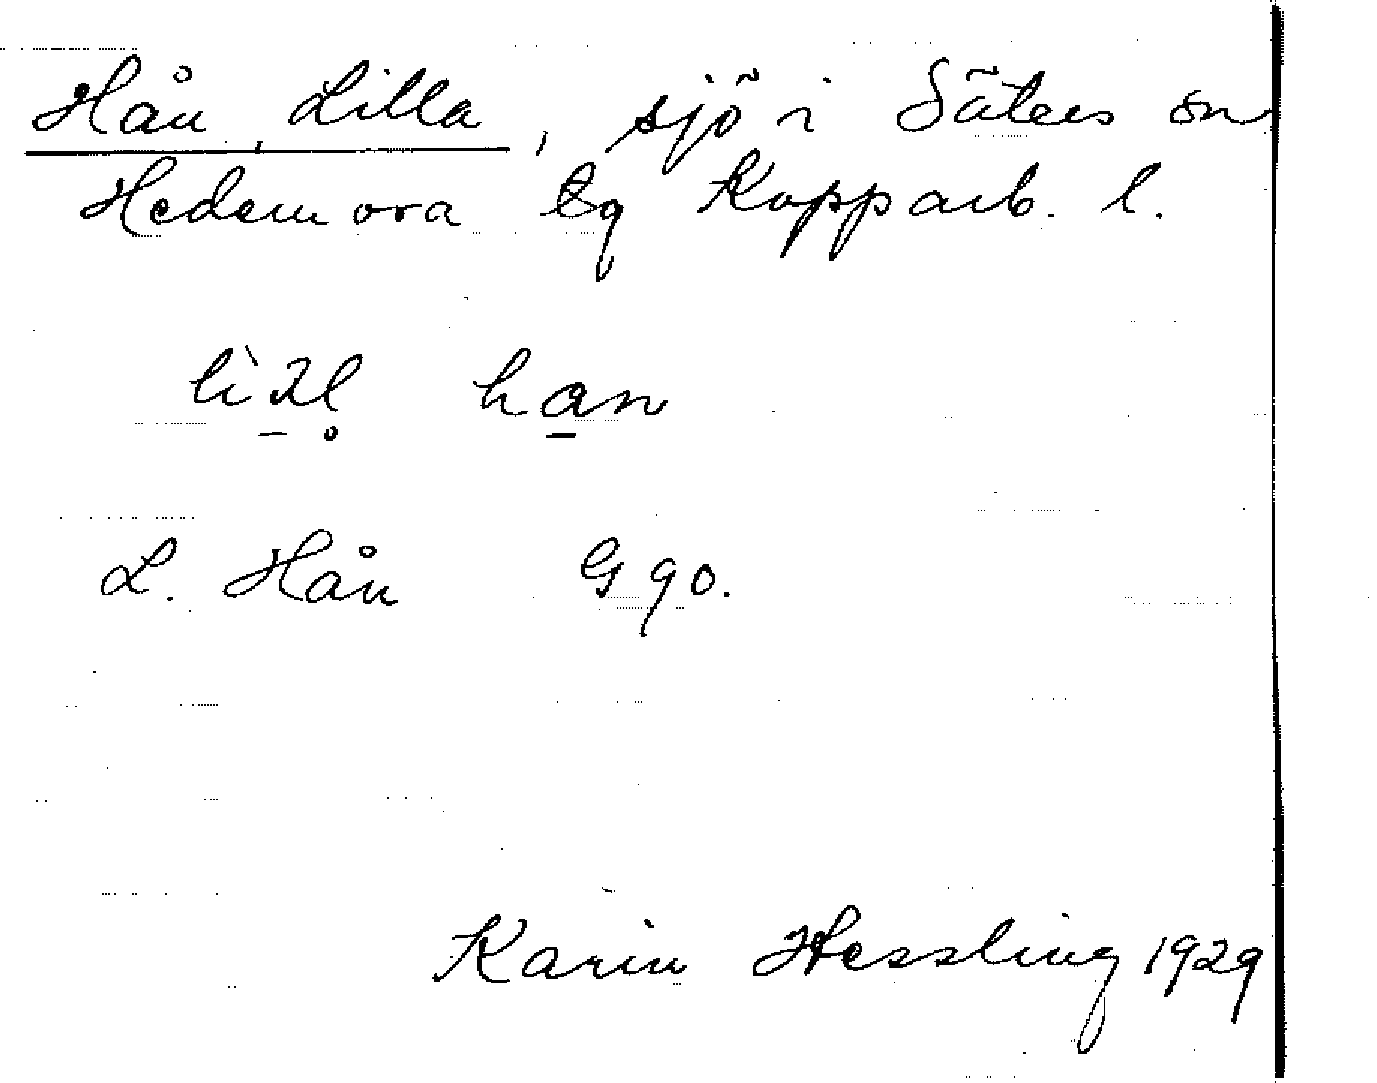 Hån, Lilla, sjö i Säters sn
Hedemora tg Kopparb. l.
han
L. Hån G 90.
Karin Hessling 1929